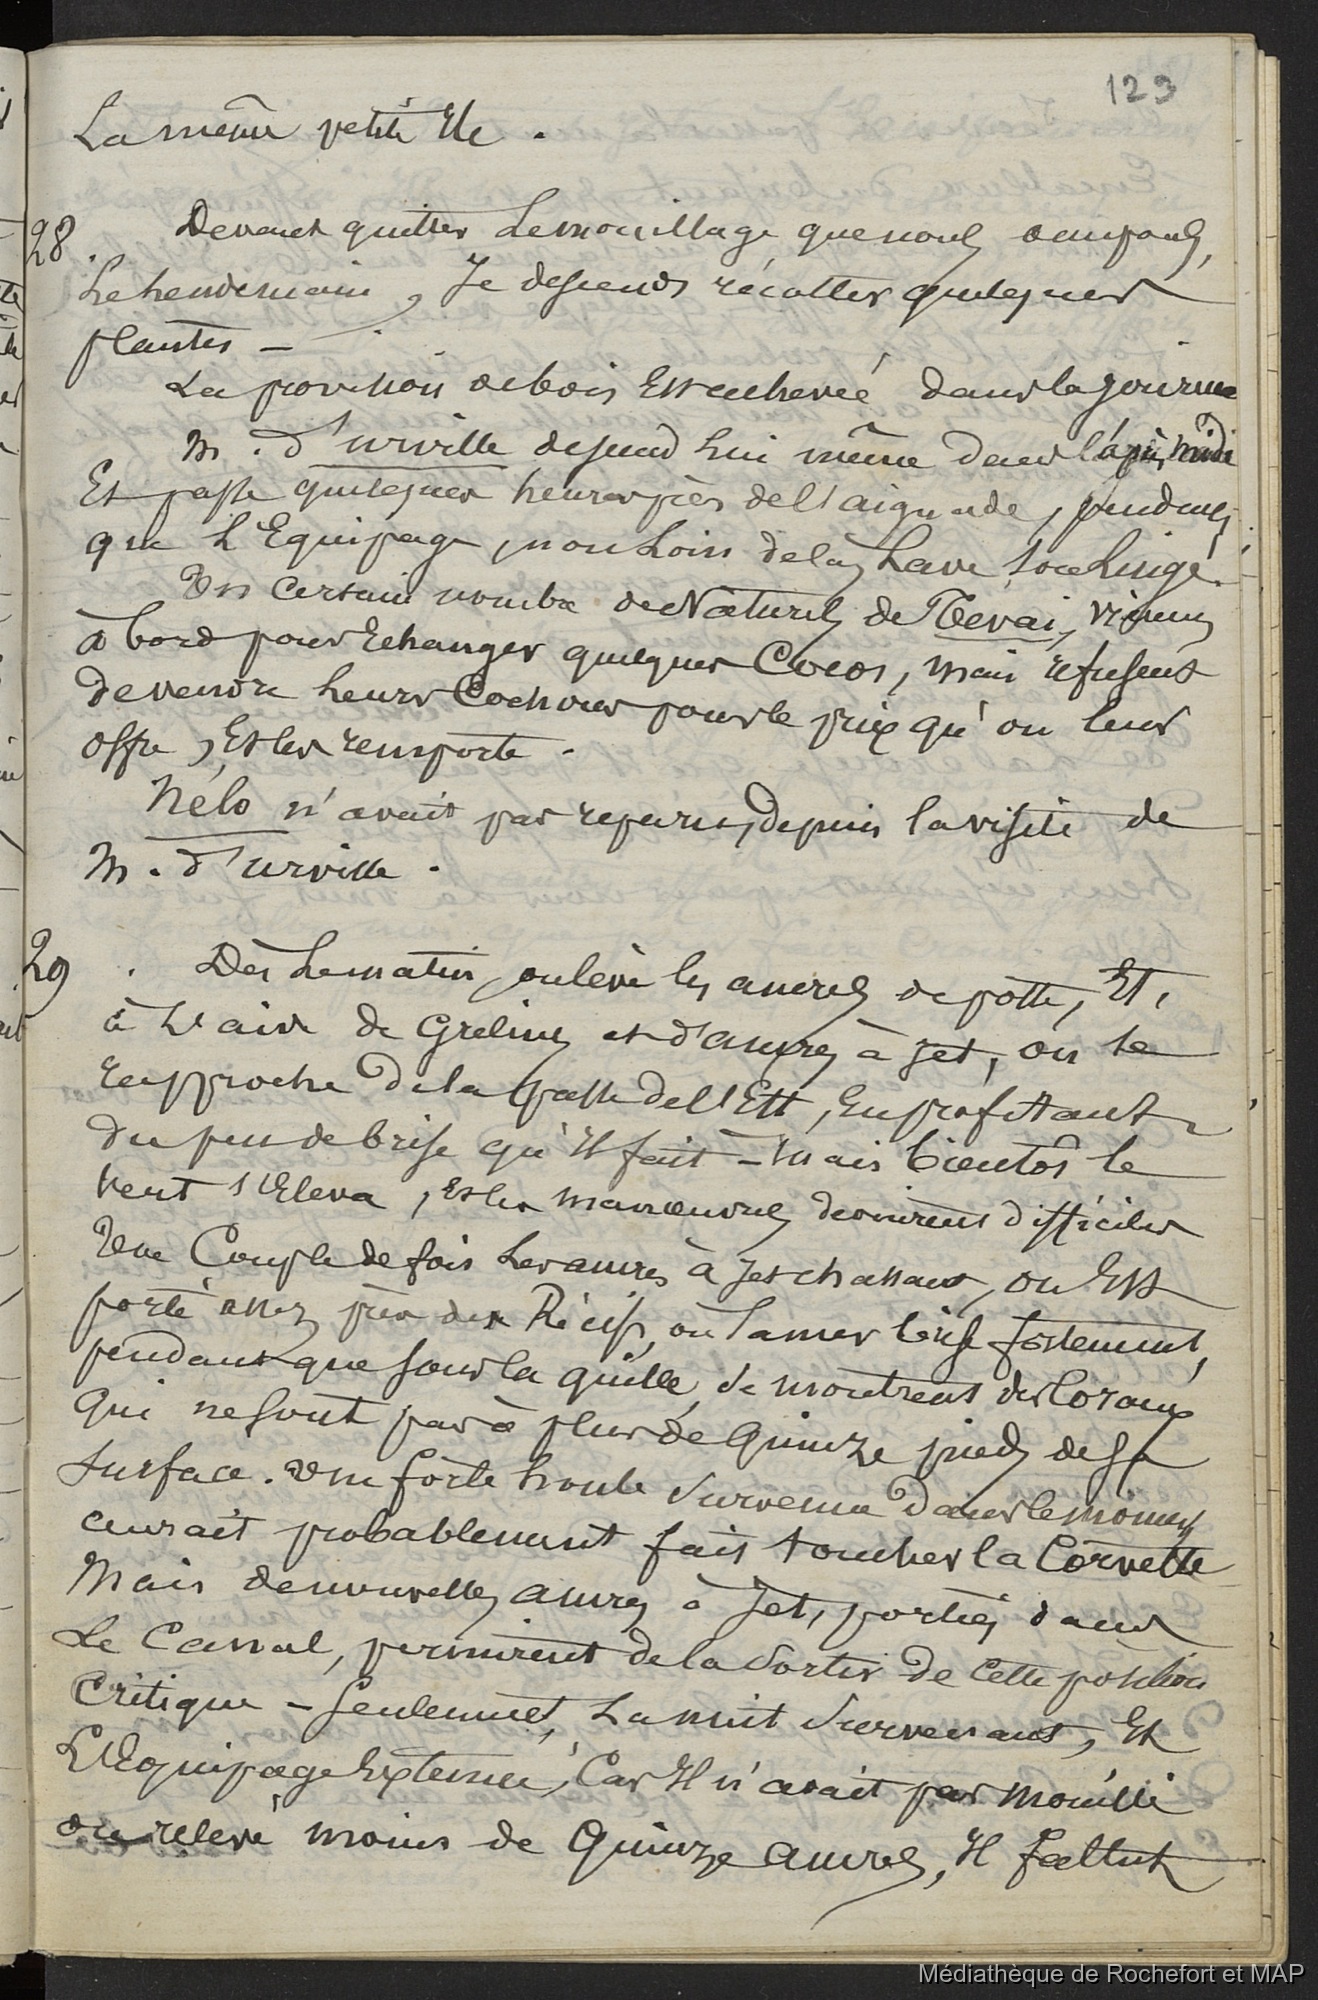 123
La même petite Ile .
28
Devant quitter Le mouillage que nous occupons,
Le hendemain, Je descends récolter quelques
plantes —
La provision de bois Est achevée dans la journée
M. d'urville descend lui même dans l'après midi
Et passe quelques heures près de l'aiguade, pendant
que L'Equipage, non Loin delà, Lave son Linge.
Un certain nombre de Naturels de Tevai, viennent
à bord pour Echanger quelques Cocos, mais refusent
de vendre leurs Cochons pour le prix qu'on leur
offre, Et les remporte .
Nélo n'avait pas reparu, depuis la visite de
M. d'urville .
29
. Dès Le matin, on lève les ancres de poste, Et,
à L'aide de Grelins et d'ancres à Jet, on se
rapproche de la passe de l'Est, En profitant
du peu de brise qu'Il fait — Mais bientôt le
vent s'Eleva, Et les manœuvres devinrent difficiles
Une Couple de fois Les ancres à Jet chassant, on Est
porté assez près des Récifs, où la mer brise fortement,
pendant que sous la quille, se montrent des Coraux
Qui ne sont pas à plus de Quinze pieds de la
surface. une forte houle survenue dans le moment
aurait probablement fait toucher la Corvette
Mais de nouvelles ancres à Jet, portées dans
Le Canal, permirent de la sortir de cette position
Critique — Seulement, La nuit survenant, Et
L'Equipage Exténué, Car Il n'avait pas mouillé
ou relevé moins de Quinze ancres, Il fallut
Médiathèque de Rochefort et MAP